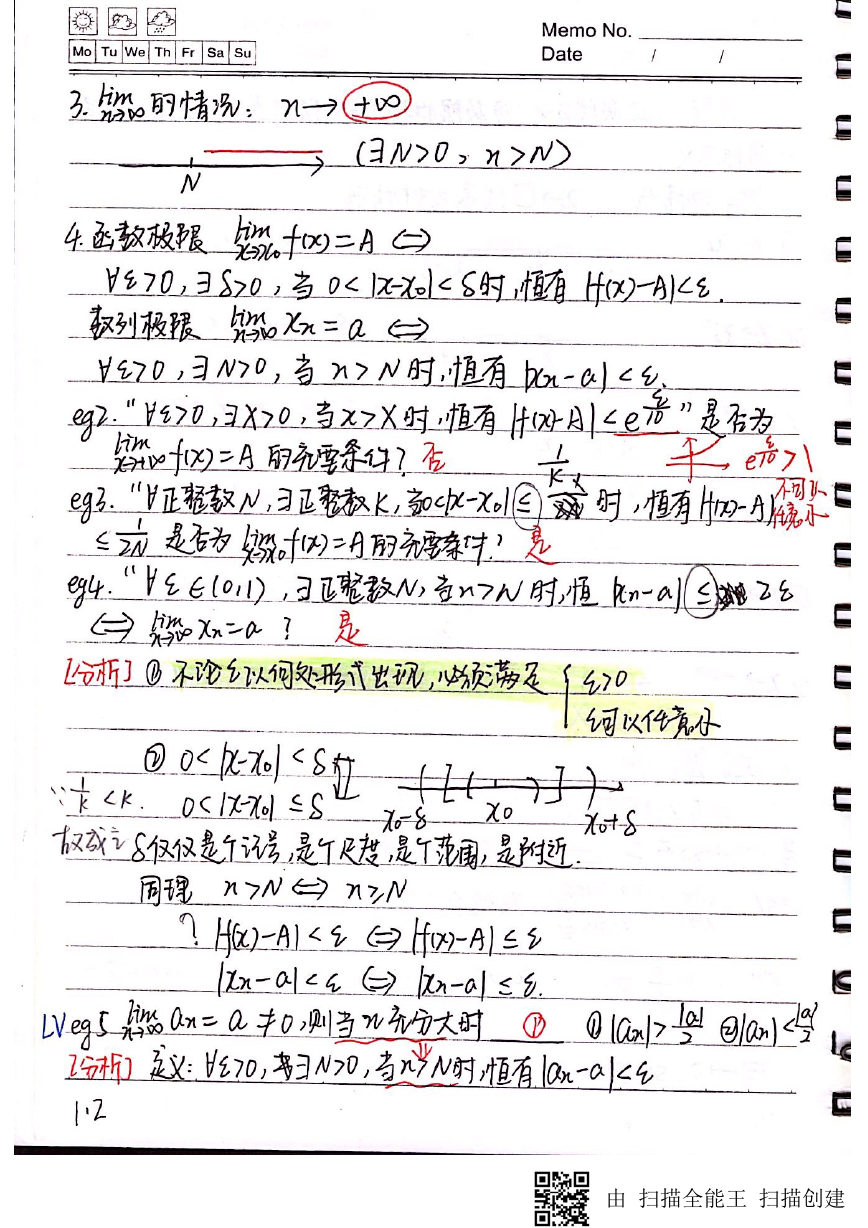 Memo No.
Mo Tu We Th Fr Sa Su
Date / /
3. lim n→∞ 的情况: n→ +∞
N (∃N>0, n>N)
4. 函数极限 lim x→x₀ f(x)=A ⇔
∀ε>0, ∃δ>0, 当 0<|x-x₀|<δ时,恒有 |f(x)-A|<ε.
数列极限 lim n→∞ xn=a ⇔
∀ε>0, ∃N>0, 当 n>N 时,恒有 |xn-a|<ε.
eg2. "∀ε>0, ∃X>0, 当x>X时,恒有 |f(x)-A|<e^(ε/10)" 是否为
lim x→+∞ f(x)=A 的充要条件? 否 e^(ε/10)>1
不可以任意小
eg3. "∀正整数N, ∃正整数K, 当0<|x-x₀| ≤ 1/K 时, 恒有 |f(x)-A|
≤ 1/2N 是否为 lim x→x₀ f(x)=A的充要条件? 是
eg4. "∀ε∈(0,1), ∃正整数N, 当n>N时,恒 |xn-a| ≤ 2ε
⇔ lim n→∞ xn=a ? 是
[分析] ① 不论ε以何处形式出现, 必须满足 { ε>0
ε可以任意小
② 0<|x-x₀|<δ
∵ 1/k <k. 0<|x-x₀|≤δ x₀-δ x₀ x₀+δ
故成立 δ仅仅是个记号,是个尺度,是个范围,是附近.
同理 n>N ⇔ n≥N
? |f(x)-A|<ε ⇔ |f(x)-A|≤ε
|xn-a|<ε ⇔ |xn-a|≤ε.
LV eg5 lim n→∞ an=a≠0, 则当n充分大时 ① ①|an|>|a|/2 ②|an|<|a|/2
[分析] 定义: ∀ε>0, ∃N>0, 当n>N时,恒有|an-a|<ε
1.2
由 扫描全能王 扫描创建